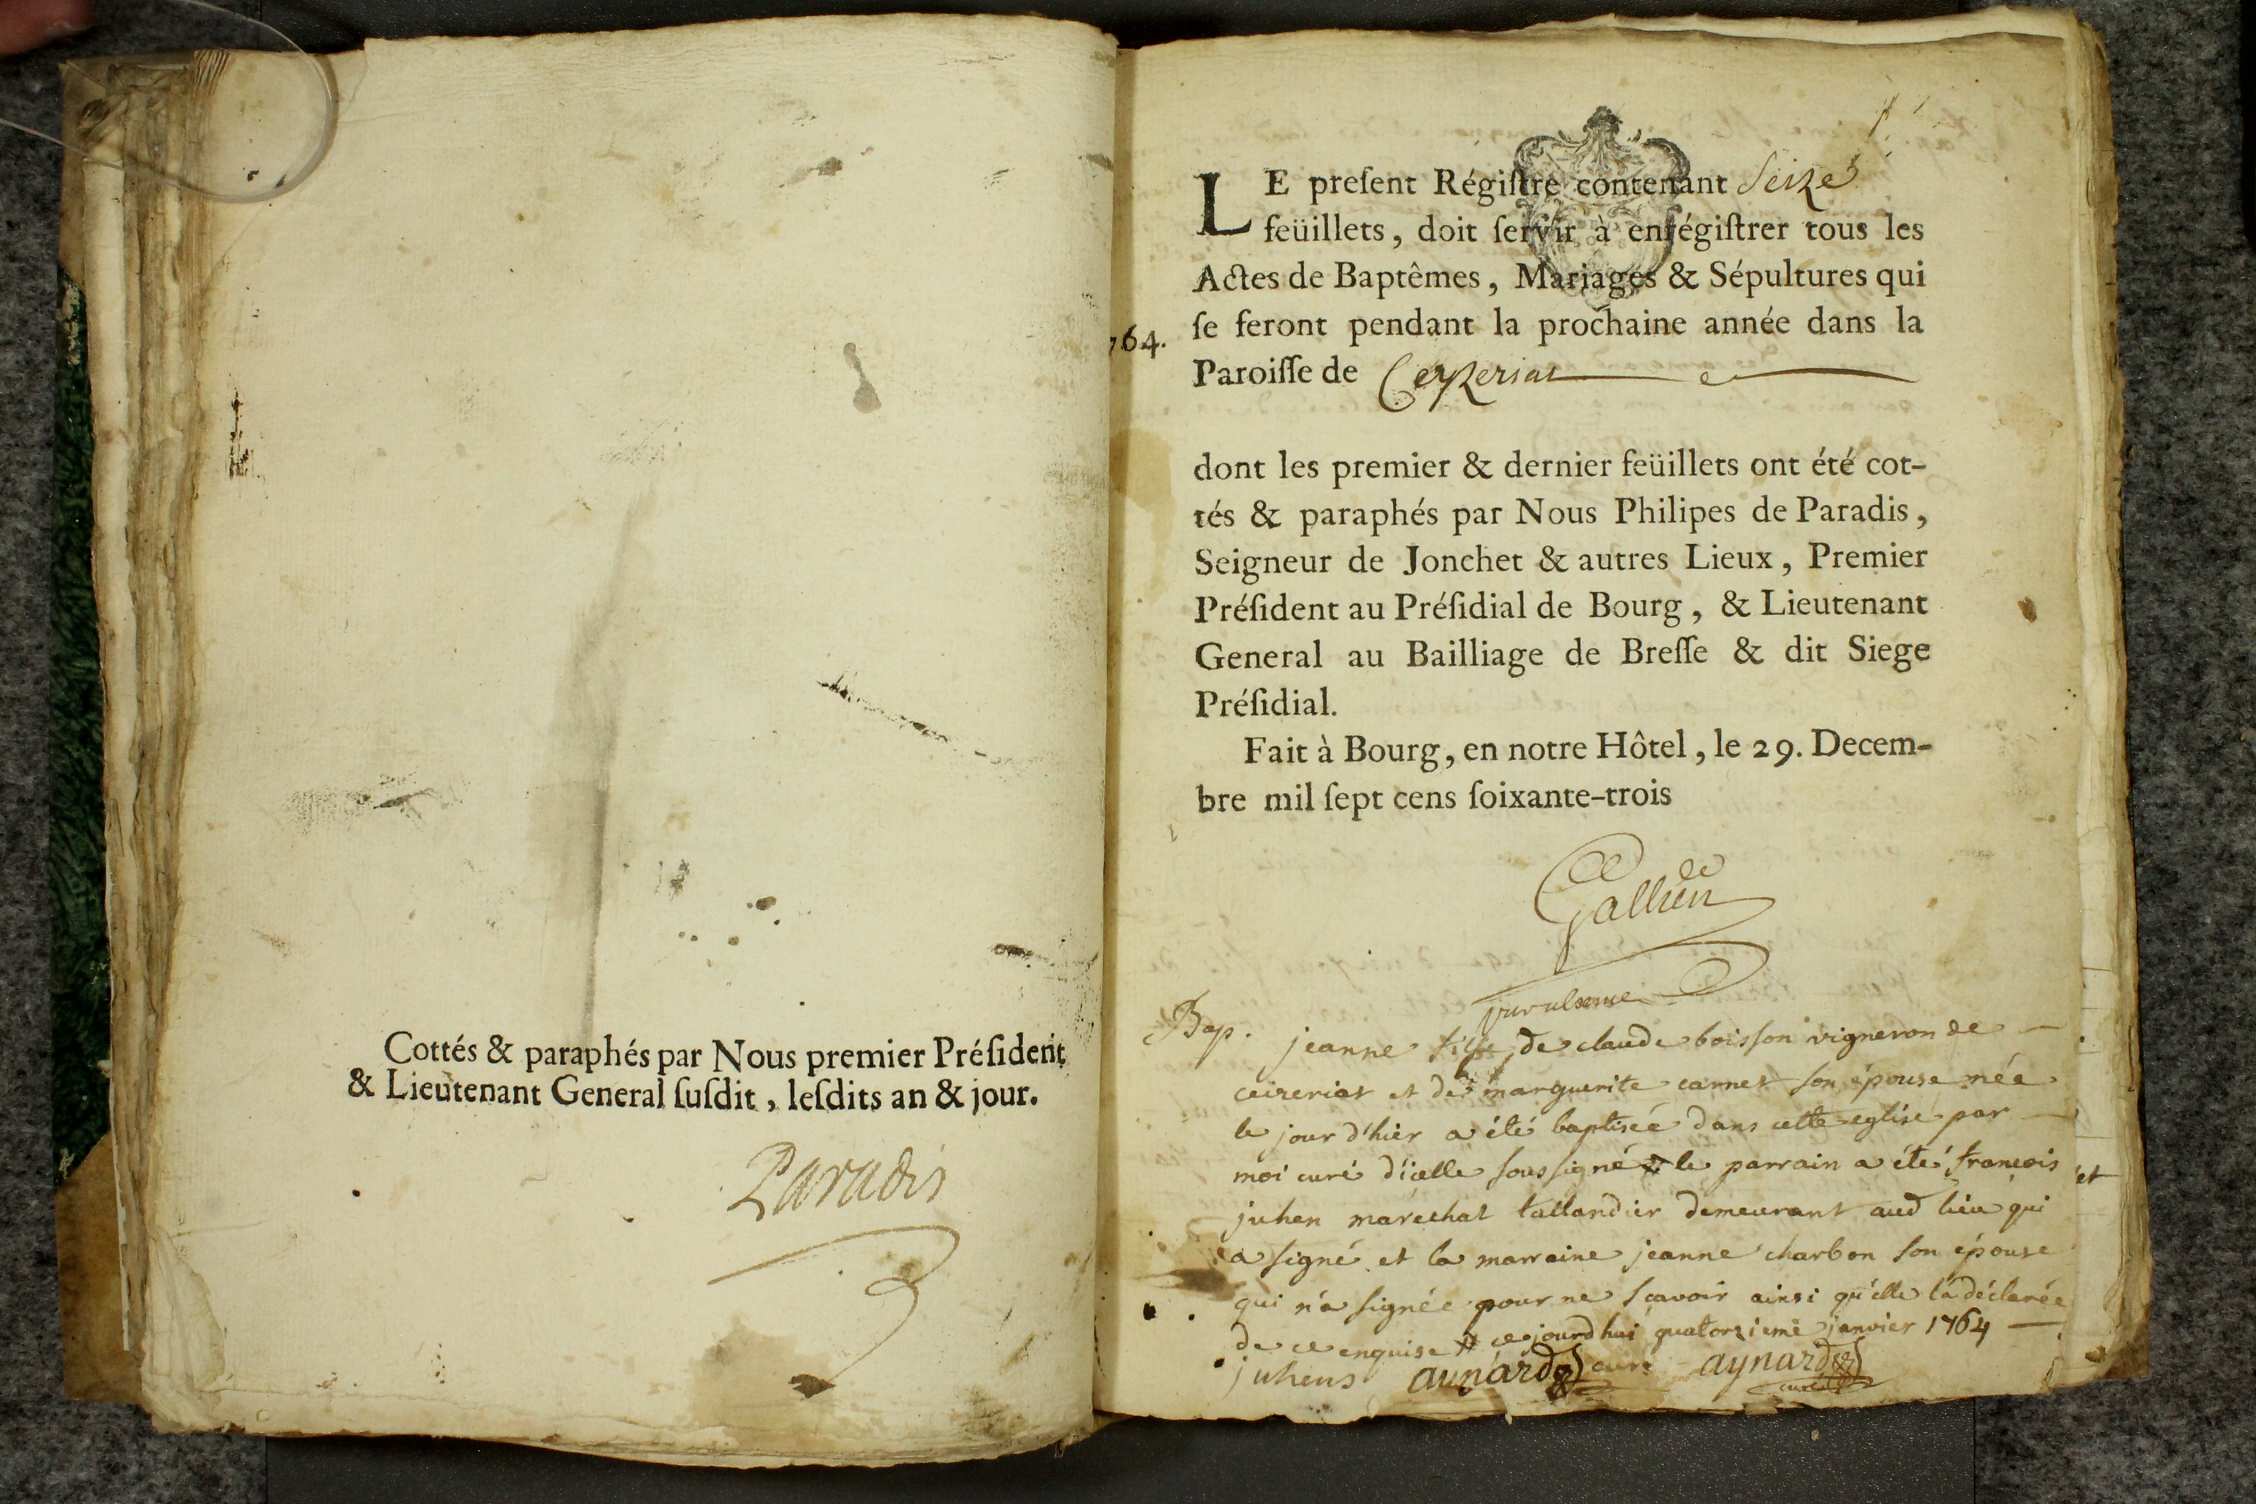 Cottés & paraphés par Nous premier Préſident
& Lieutenant General ſuſdit, leſdits an & jour.
Paradis
LE preſent Régiſtre contenant Seize
feüillets, doit ſervir à enrégiſtrer tous les
Actes de Baptêmes, Mariages & Sépultures qui
ſe feront pendant la prochaine année dans la
764.
Paroiſſe de Ceyzeriat
dont les premier & dernier feüillets ont été cot-
tés & paraphés par Nous Philipes de Paradis,
Seigneur de Jonchet & autres Lieux, Premier
Préſident au Préſidial de Bourg, & Lieutenant
General au Bailliage de Breſſe & dit Siege
Préſidial.
Fait à Bourg, en notre Hôtel, le 29. Decem-
bre mil ſept cens ſoixante-trois
Bap. jeanne fille de claude boisson vigneron de
ceizeriat et de marguerite carnet son épouse née
le jour d'hier a été baptiseé dans cette eglise par
moi curé d'icelle soussigné le parrain a été francois
juhen maréchal taillandier demeurant aud lieu qui
a signé et la marraine jeanne charbon son épouse
qui n'a signée pour ne scavoir ainsi qu'elle la déclarée
de ce enquise # cejourdhui quatorzieme janvier 1764
juhens aynard curé aynard
curé